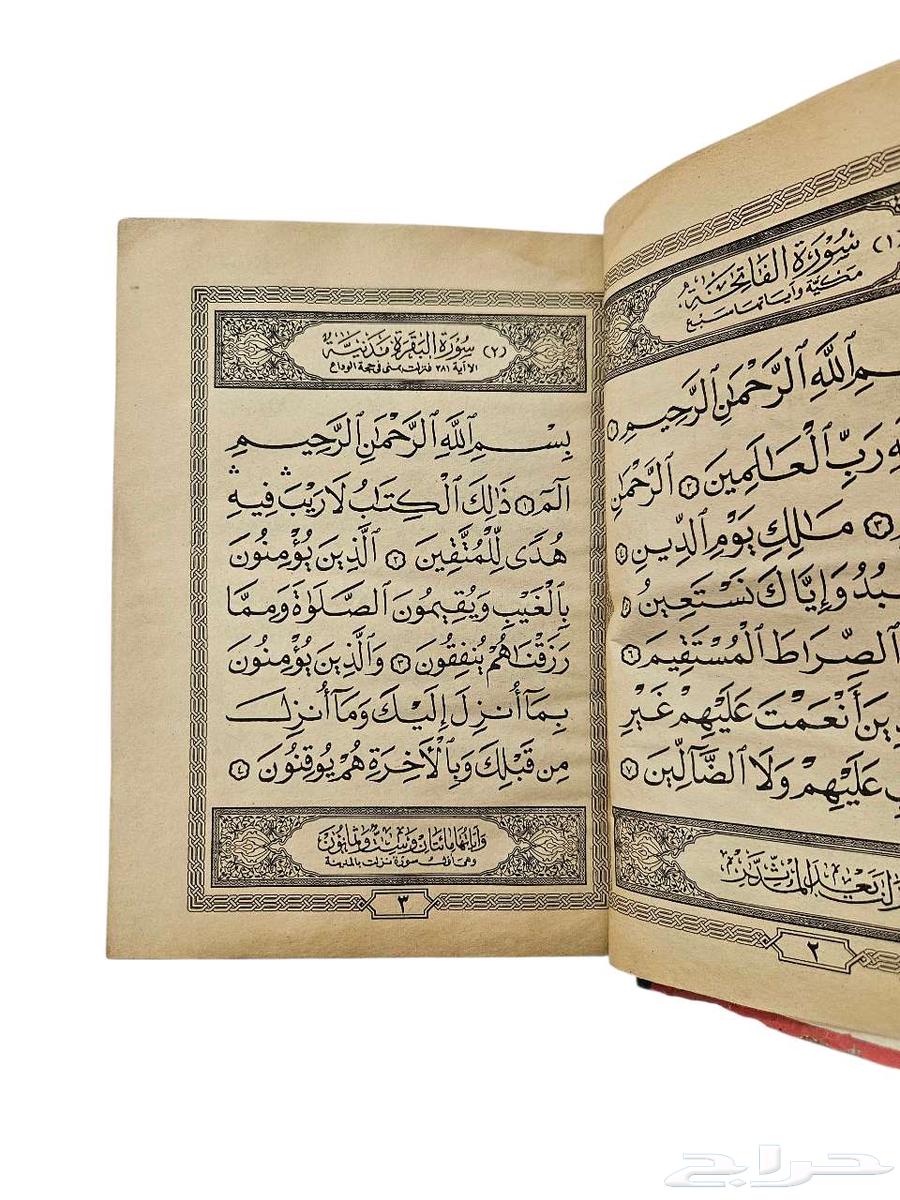 سُورَةُ الفَاتِحَةِ (١)
مَكيَّة وَايَاتهَا سَبْع
ٱللَّهِ ٱلرَّحْمَٰنِ ٱلرَّحِيمِ ١
رَبِّ ٱلْعَٰلَمِينَ ٢ ٱلرَّحْمَٰنِ
٣ مَٰلِكِ يَوْمِ ٱلدِّينِ ٤
وَإِيَّاكَ نَسْتَعِينُ ٥
ٱلصِّرَٰطَ ٱلْمُسْتَقِيمَ ٦
أَنْعَمْتَ عَلَيْهِمْ غَيْرِ
عَلَيْهِمْ وَلَا ٱلضَّآلِّينَ ٧
٢
(٢) سُورَة البَقَرَة مَدَنيَّة
الا آية ٢٨١ فنزلت بمنى فى حجة الوداع
بِسْمِ ٱللَّهِ ٱلرَّحْمَٰنِ ٱلرَّحِيمِ
الٓمٓ ١ ذَٰلِكَ ٱلْكِتَٰبُ لَا رَيْبَ ۛ فِيهِ ۛ
هُدًى لِّلْمُتَّقِينَ ٢ ٱلَّذِينَ يُؤْمِنُونَ
بِٱلْغَيْبِ وَيُقِيمُونَ ٱلصَّلَوٰةَ وَمِمَّا
رَزَقْنَٰهُمْ يُنفِقُونَ ٣ وَٱلَّذِينَ يُؤْمِنُونَ
بِمَآ أُنزِلَ إِلَيْكَ وَمَآ أُنزِلَ
مِن قَبْلِكَ وَبِٱلْأَخِرَةِ هُمْ يُوقِنُونَ ٤
وَآيَاتُهَا مائتان وَسِتٌّ وَثمَانُونَ
وهى أول سورة نزلت بالمدينة
٣
حراج